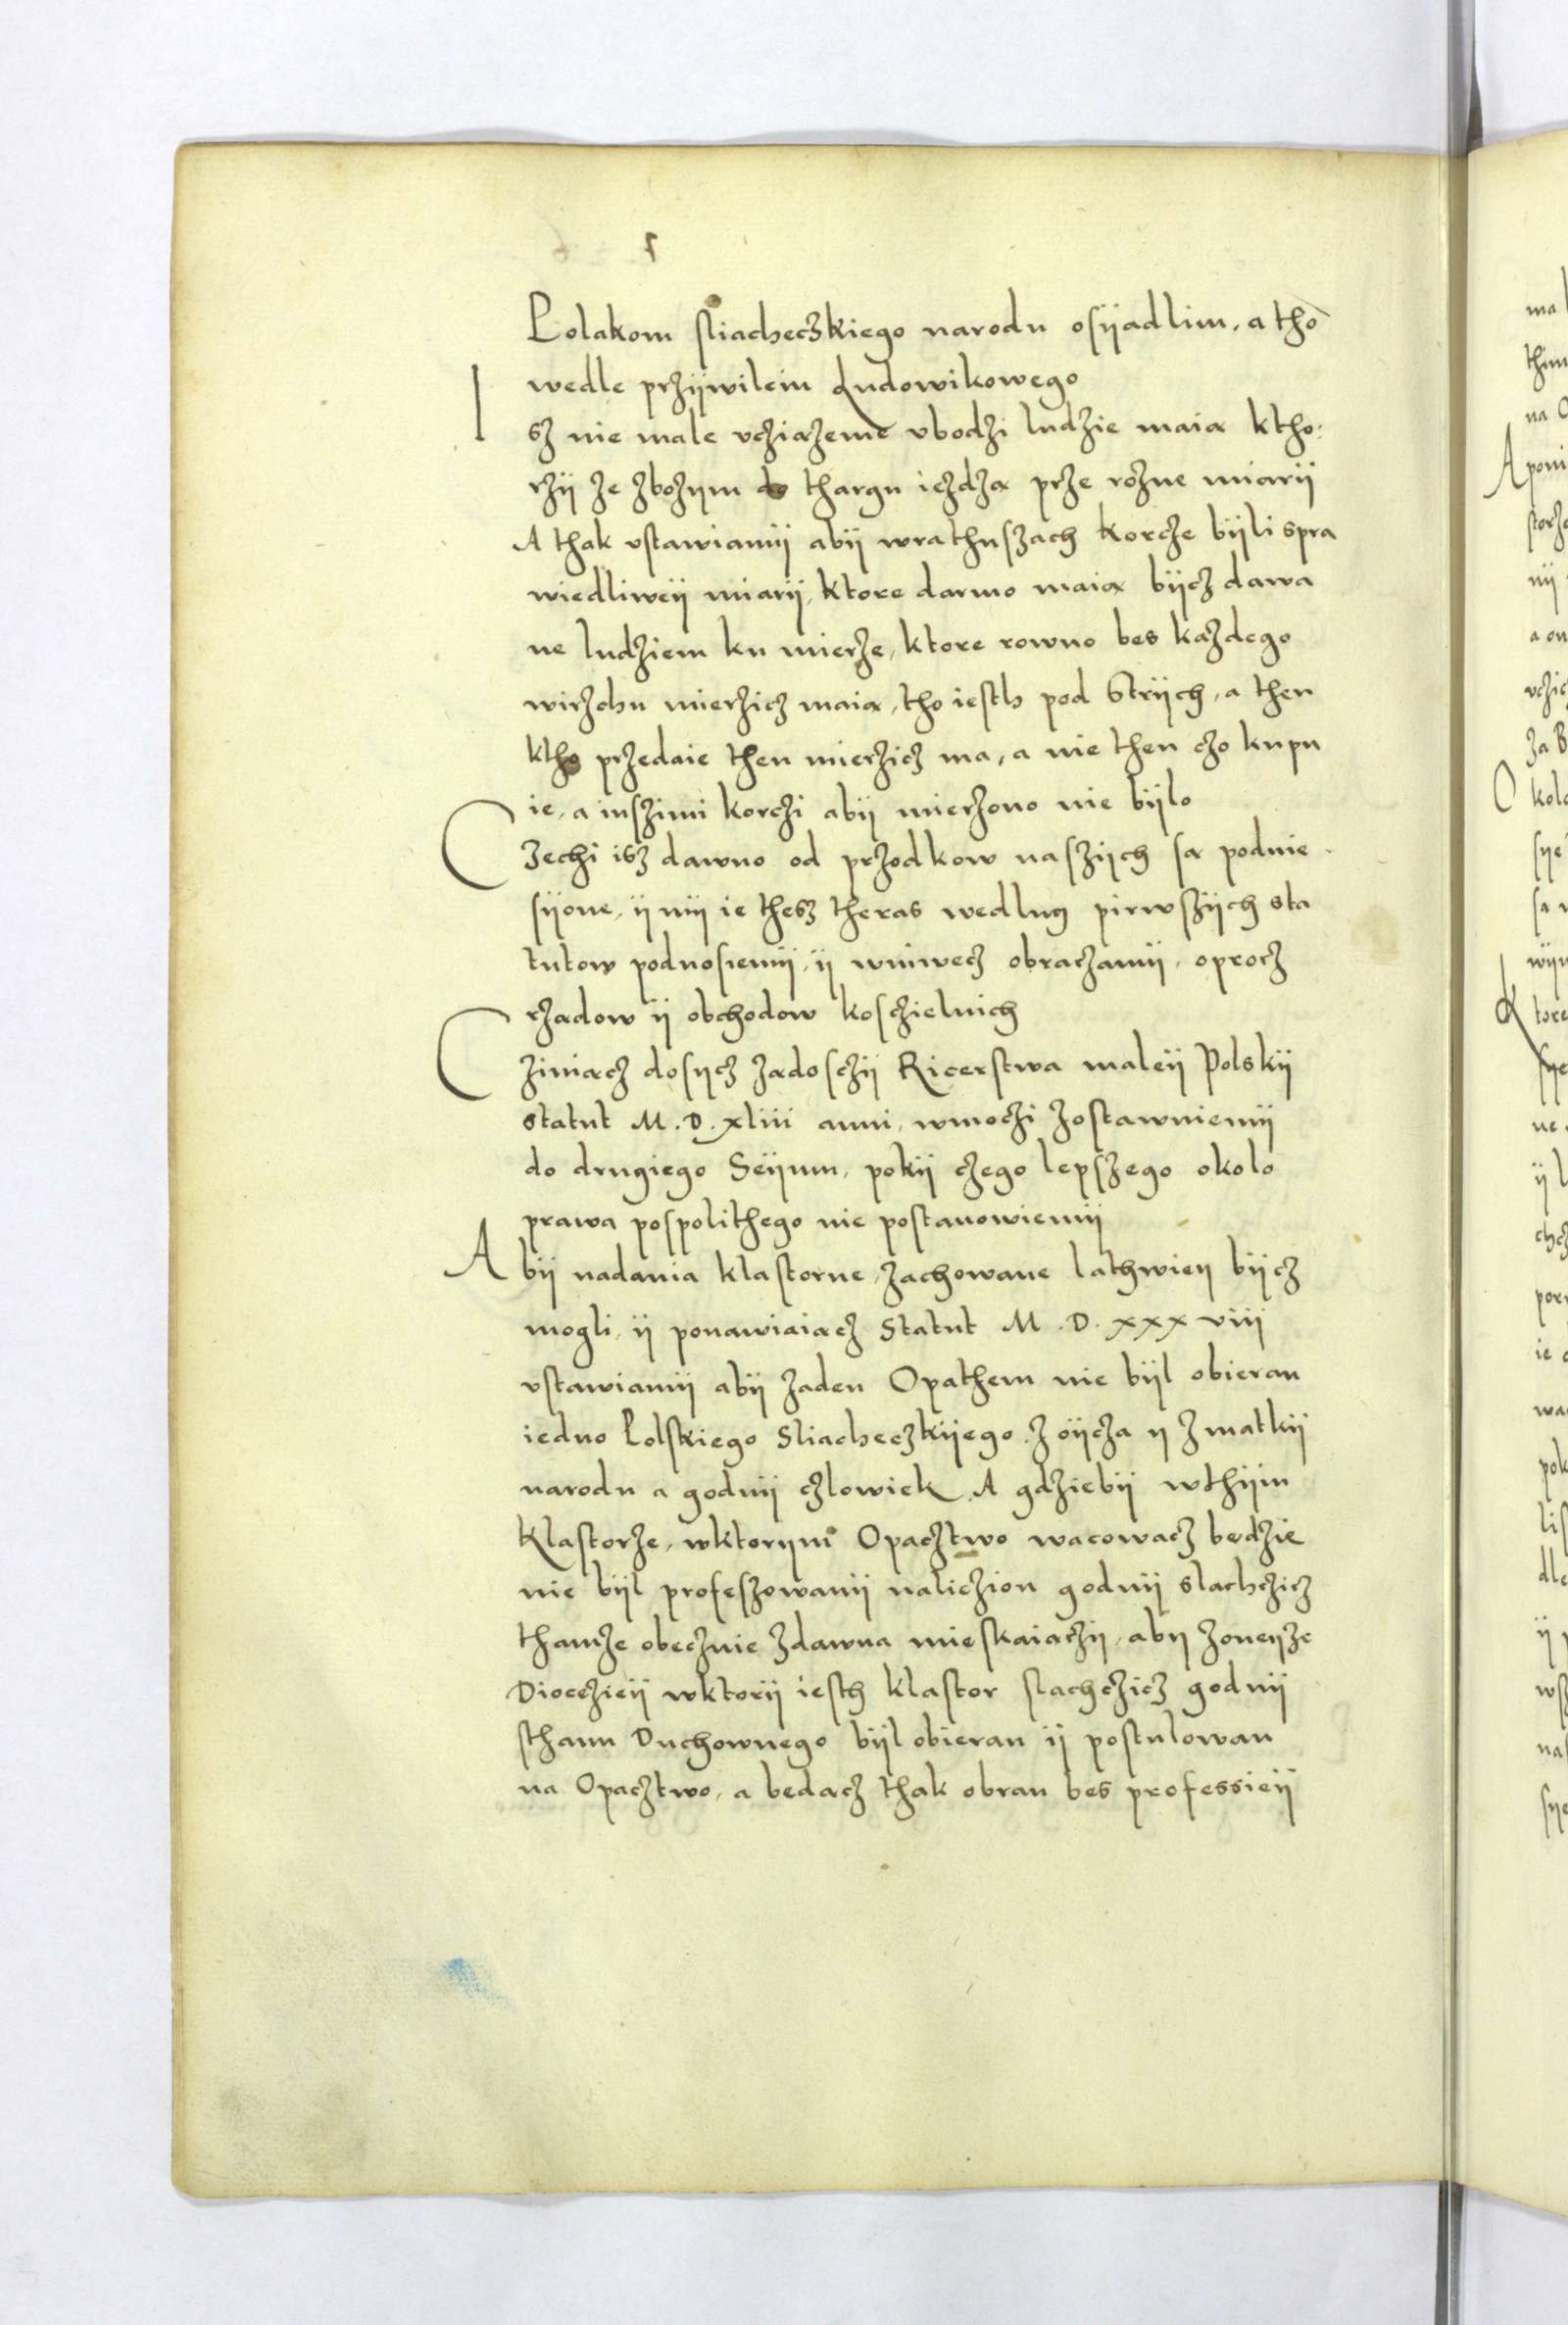 Polakom sliacheczkiego narodu osijadlim, a tho
wedle przijwileiu Ludowikowego
I sz nie male vcziazeme vbodzi ludzie maia ktho:
rzij ze zbozym do thargu iezdza prze rozne miarij
A thak vstawiamij abij wrathuszach korcze bijli spra
wiedliweij miarij, ktore darmo maia bijcz dawa
ne ludziem ku mierze, ktore rowno bes kazdego
wirzchu mierzicz maia, tho iesth pod Strijch, a then
ktho przedaie then mierzicz ma, a nie then czo kupu
ie, a inszimi korczi abij mierzono nie bijlo
C zechi isz dawno od przodkow naszijch sa podnie
sijone, ij mij ie thesz theras wedlug pirwszijch sta
tutow podnosiemij, ij wniwecz obraczamij, oprocz
rzadow ij obchodow kosczielnich
C ziniacz dosycz zadosczij Ricerstwa maleij Polskij
statut M. D. xliii anni, wmoczi zostawuiemij
do drugiego Seijmu, pokij czego lepszego okolo
prawa pospolithego nie postanowiemij
A bij nadania klastorne, zachowane lathwieij bijcz
mogli, ij ponawiaiacz Statut M. D. xxx viii
vstawiamij abij zaden Opathem nie bijl obieran
iedno Polskiego Sliacheczkijego z oijcza y z matkij
narodu a godnij czlowiek, A gdziebij wthijm
Klastorze, wktorym Opacztwo wacowacz bedzie
nie bijl profeszowanij naliczion godnij slachczicz
thamze obecznie zdawna mieskaiaczij, aby zoneyze
Dioecziei̇j wktorij iesth klastor slachczicz godnij
sthanu Duchownego bijl obieran ij postulowan
na Opacztwo, a bedacz thak obran bes professieij